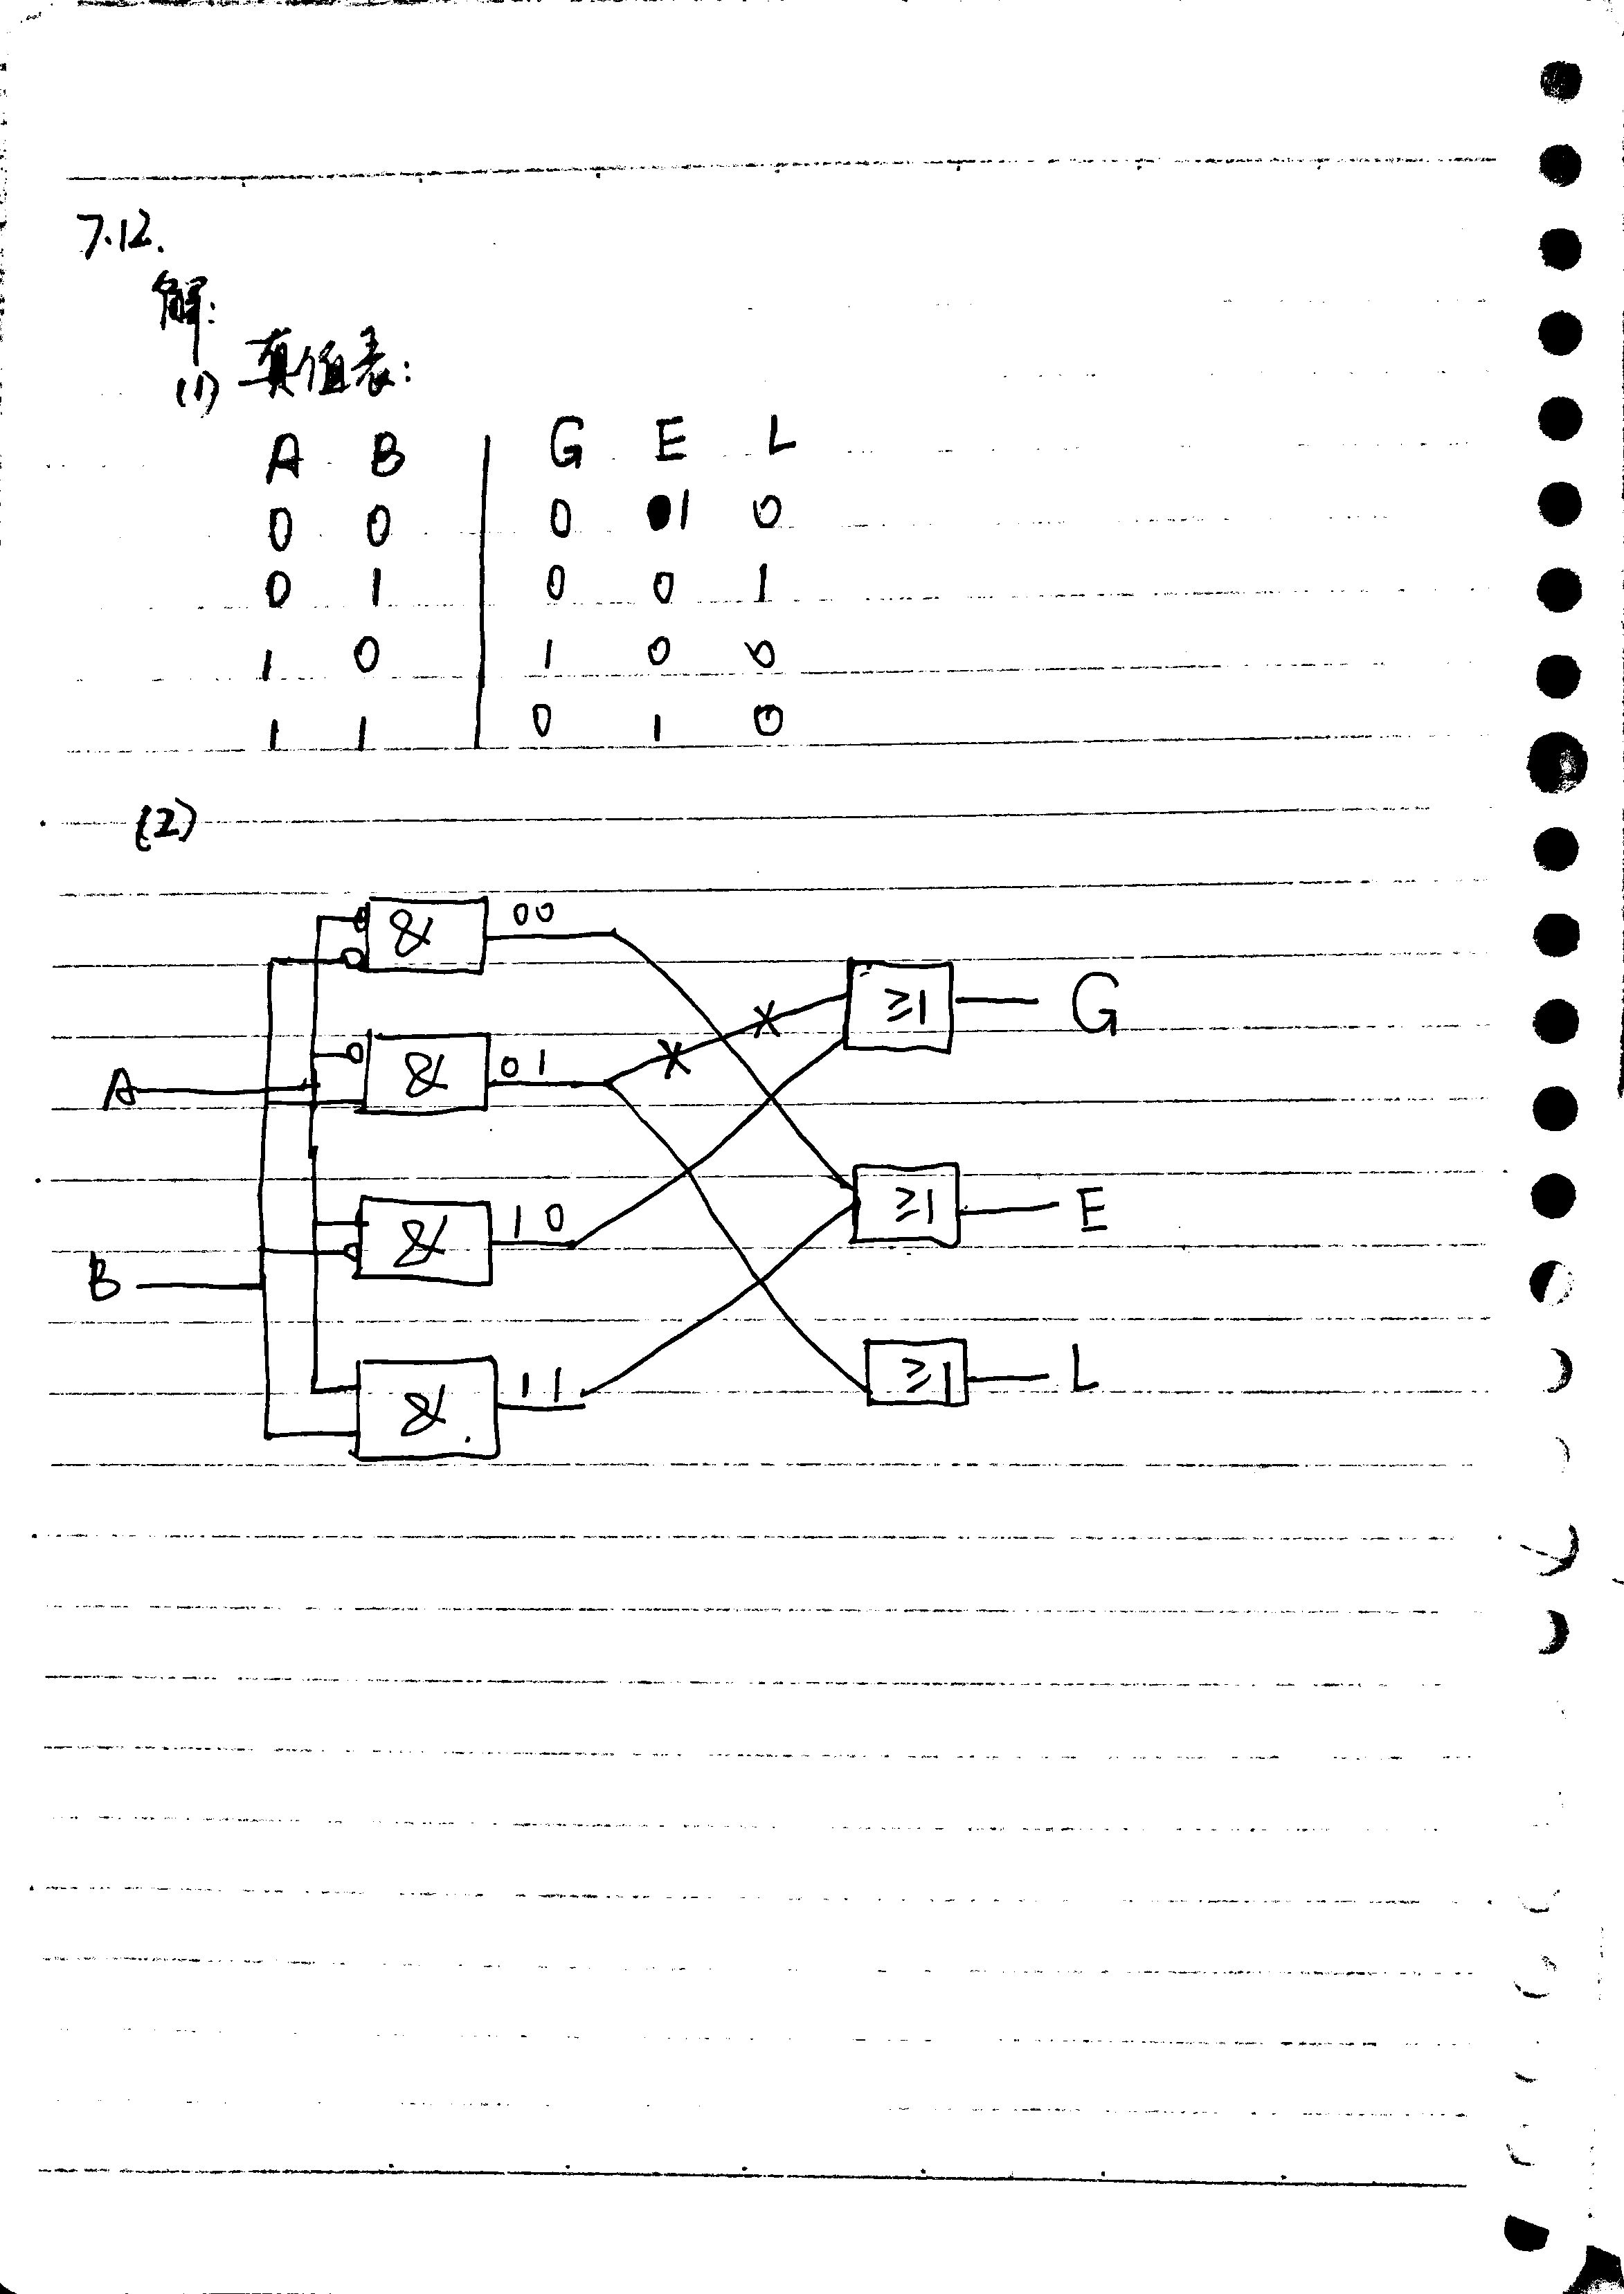 7.12.
解:
(1) 真值表:
A B G E L
0 0 0 1 0
0 1 0 0 1
1 0 1 0 0
1 1 0 1 0
(2)
& 00
≥1 G
A & 01
≥1 E
& 10
B
≥1 L
& 11